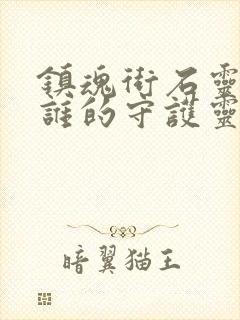 鎮魂街石靈
誰的守護靈
暗翼猫王